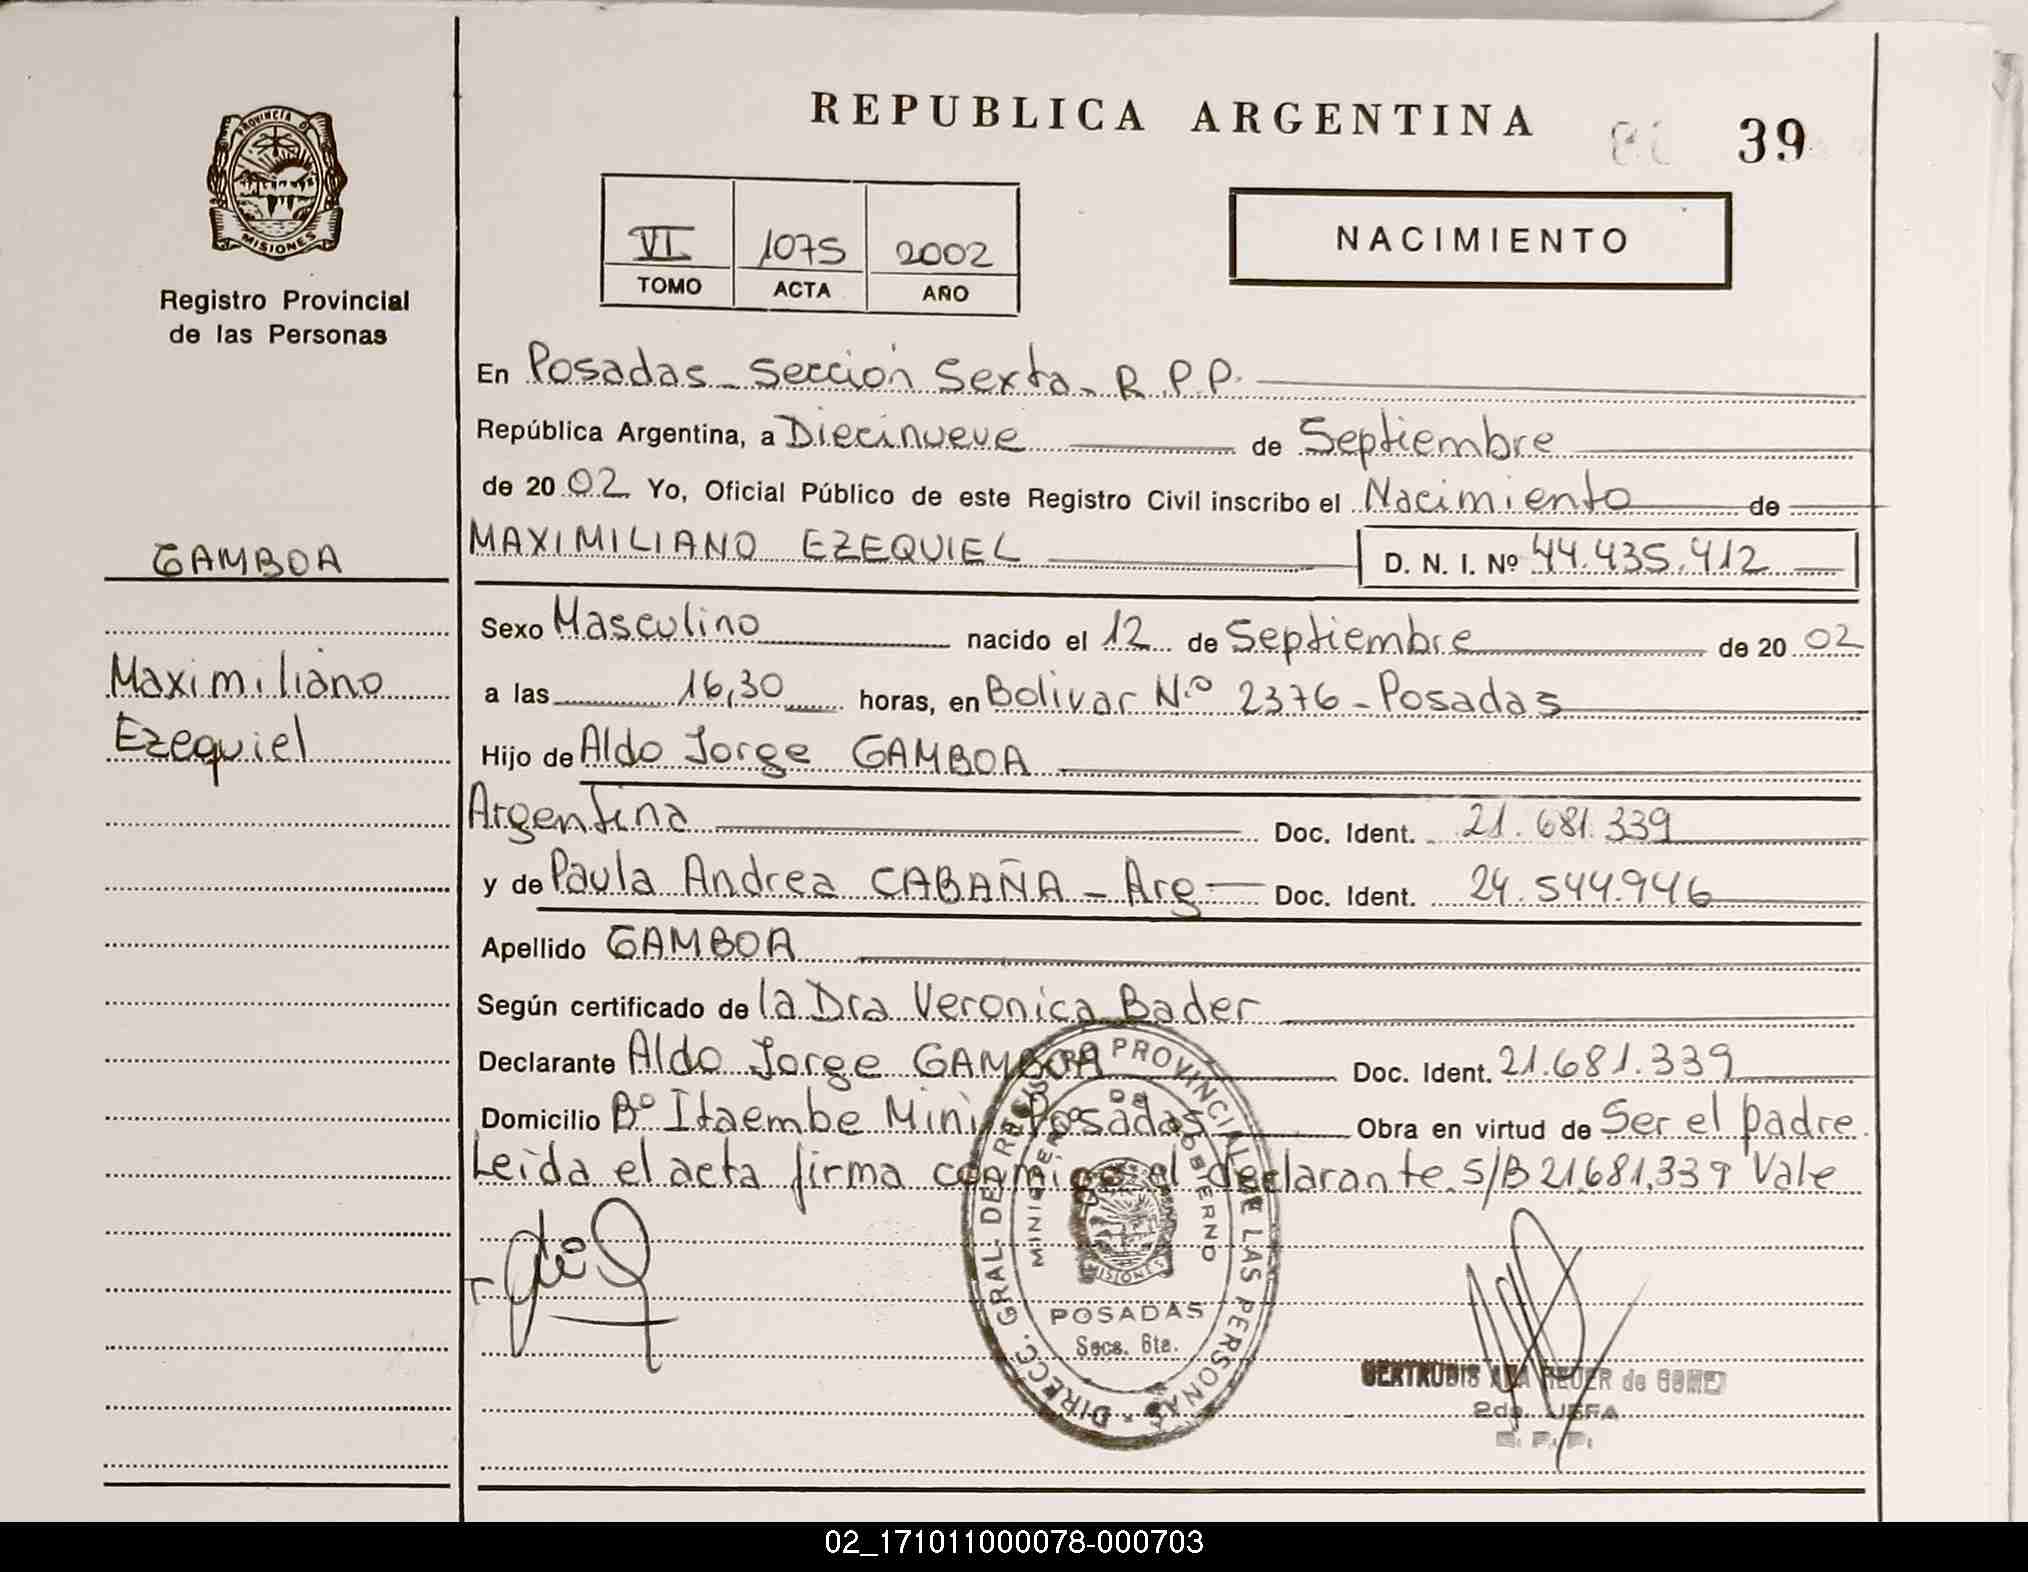 REPUBLICA ARGENTINA
39
PROVINCIA D
MISIONES
Registro Provincial
de las Personas
VI 1075 2002
TOMO ACTA AÑO
NACIMIENTO
En Posadas - Sección Sexta - R.P.P.
República Argentina, a Diecinueve de Septiembre
de 2002 Yo, Oficial Público de este Registro Civil inscribo el Nacimiento de
MAXIMILIANO EZEQUIEL D. N. I. Nº 44.435.412
GAMBOA
Maximiliano
Ezequiel
Sexo Masculino nacido el 12 de Septiembre de 2002
a las 16,30 horas, en Bolivar N.º 2376 - Posadas
Hijo de Aldo Jorge GAMBOA
Argentina Doc. Ident. 21.681.339
y de Paula Andrea CABAÑA - Arg Doc. Ident. 24.544.946
Apellido GAMBOA
Según certificado de la Dra Veronica Bader
Declarante Aldo Jorge GAMBOA Doc. Ident. 21.681.339
Domicilio Bº Itaembe Mini Posadas Obra en virtud de Ser el padre
Leida el acta firma conmigo el declarante S/B 21.681.339 Vale
DIRECC. GRAL. DE REGISTRO PROVINCIAL DE LAS PERSONAS
MINISTERIO DE GOBIERNO
MISIONES
POSADAS
Secc. 6ta.
GERTRUDIS REUER de
2da. JEFA
R. P. P.
02_171011000078-000703